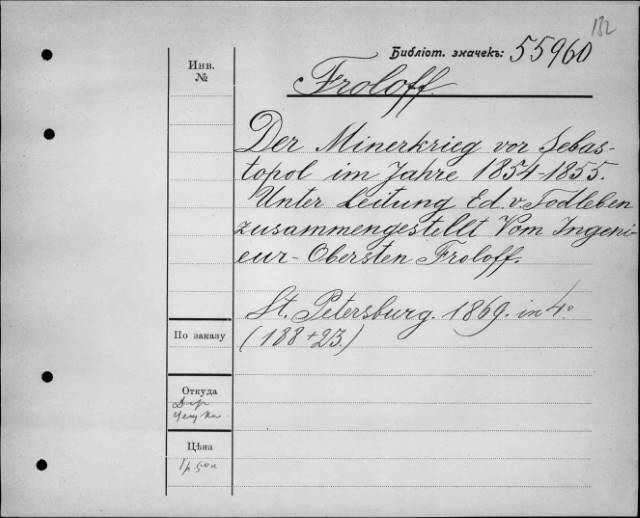 182
Библіот. значекъ: 55960
Инв.
№
Froloff.
Der Minerkrieg vor Sebas-
topol im Jahre 1854-1855.
Unter Leitung Ed. v. Todleben
zusammengestellt Vom Ingeni-
eur-Obersten Froloff.
St. Petersburg. 1869. in 4°
(188+23.)
По заказу
Откуда
Цѣна